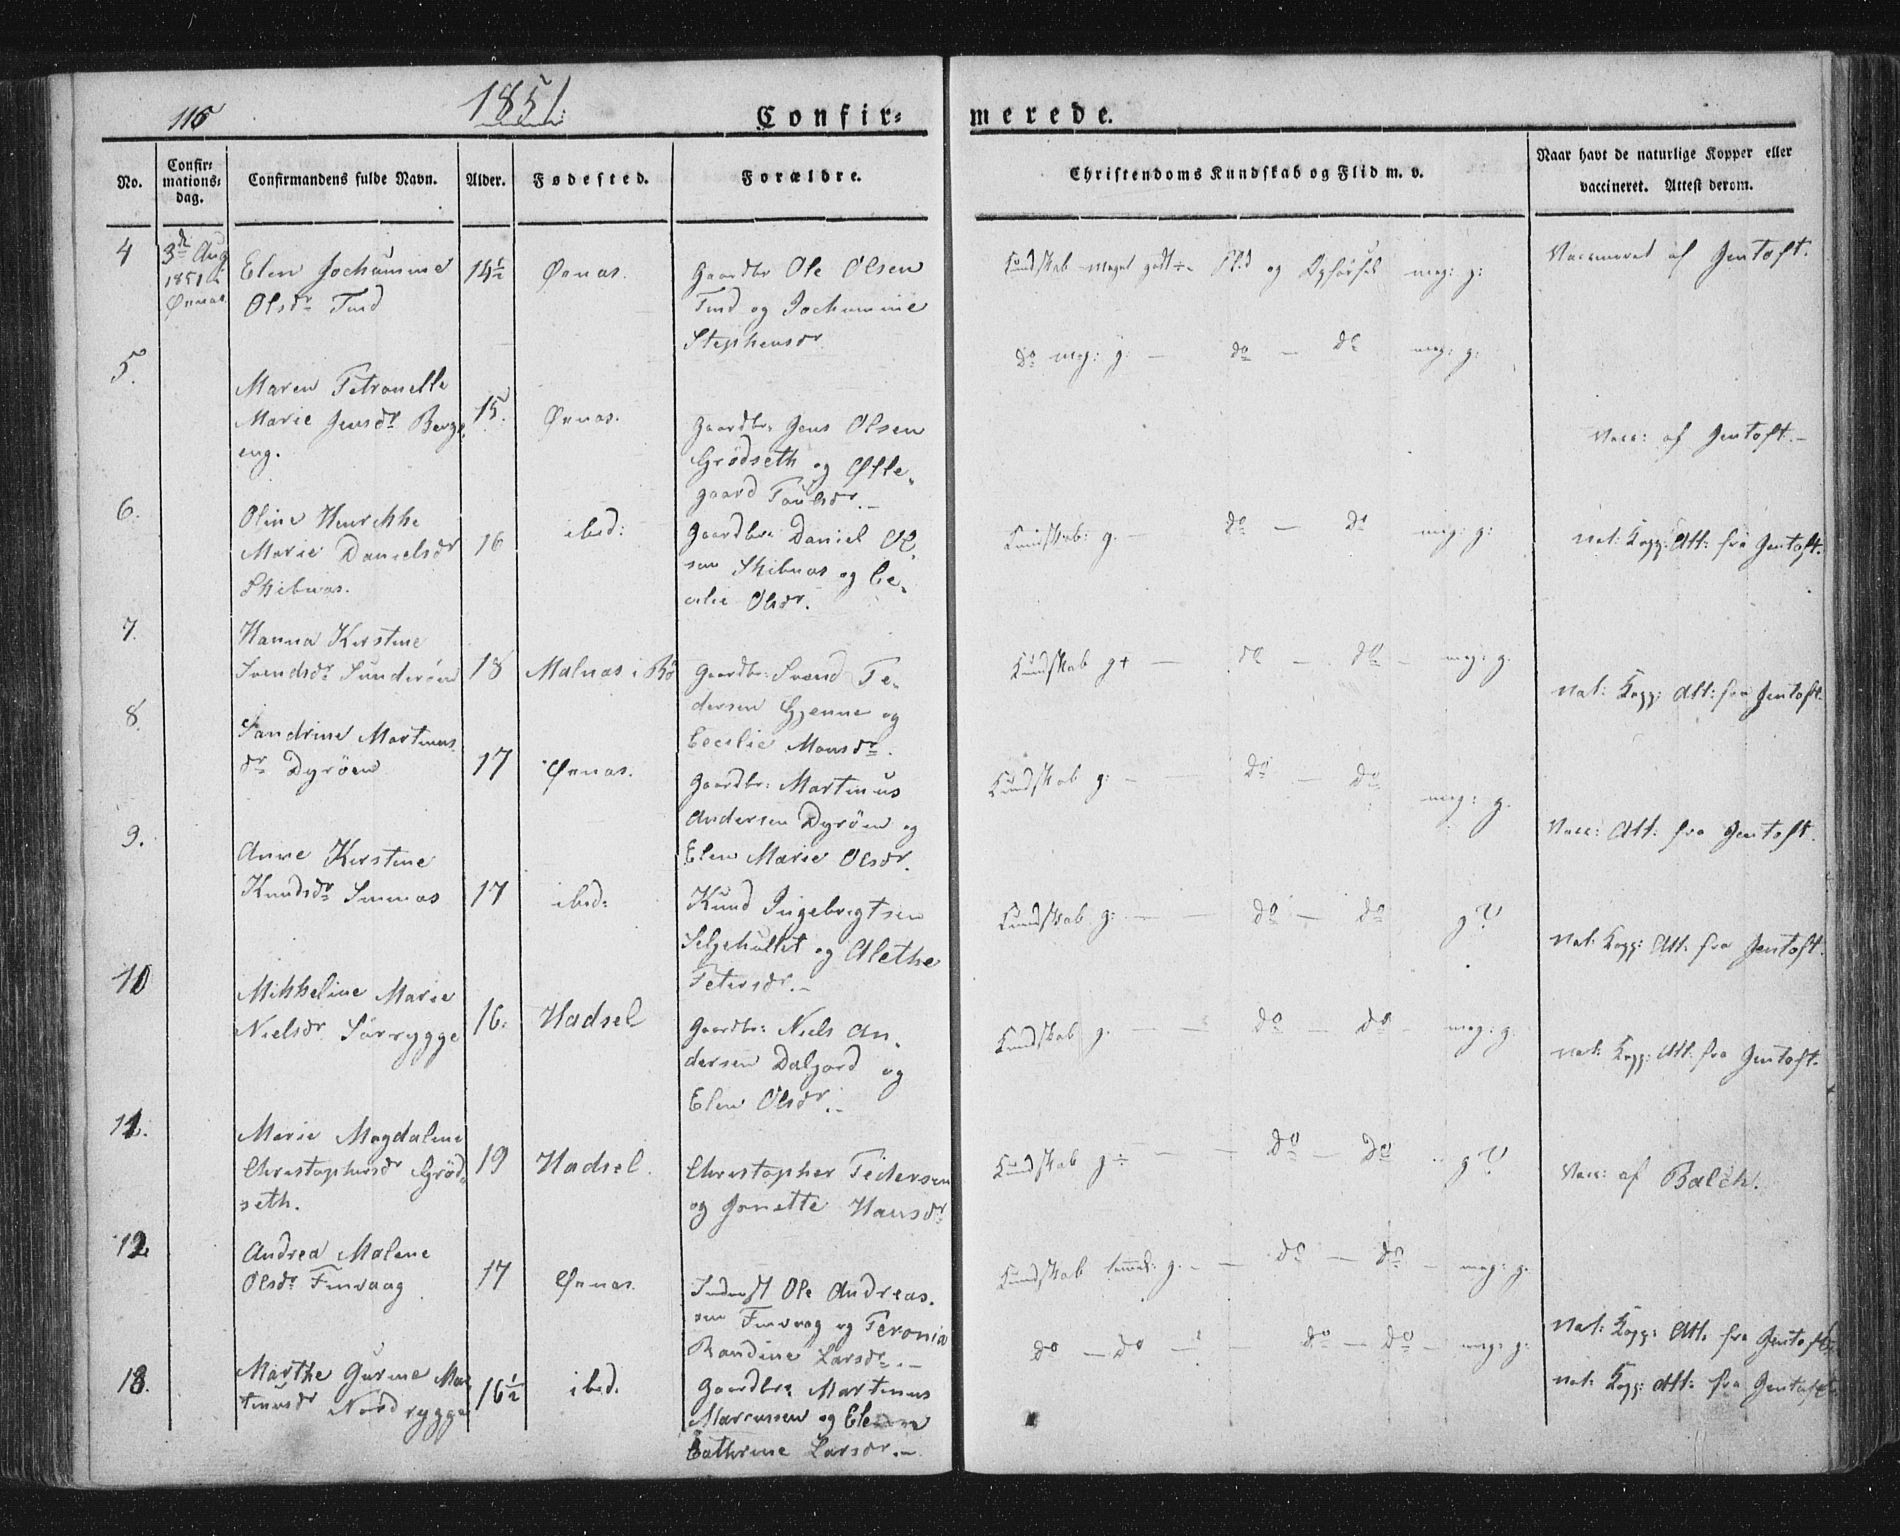 116
1851.
Confir=
merede.
No.
Confir=
mations=
dag.
Confirmandens fulde Navn.
Alder.
Fødested.
Forældre.
Christendoms Kundskab og Flid m. v.
Naar havt de naturlige Kopper eller
vaccineret. Attest derom.
4
3de Aug
1851 i
Øxnæs
Elen Jochumine
Olsdr Tind
14½
Øxnæs.
Gaardbr Ole Olsen
Tind og Jochumine
Stephensdr
Kundskab meget godt÷. Flid og Opførsel meg: g:
Vaccineret af Jentoft.
5.
Maren Petronelle
Marie Jensdr Berg=
eng.
15.
Øxnæs.
Gaardbr: Jens Olsen
Grödseth og Olle=
gaard Paulsdr.—
do meg: g: — do — do meg: g:
Vacc: af Jentoft.—
6.
Oline Henrikke
Marie Danielsdr
Skibnæs.
16
ibid:
Gaardbr: Daniel Ol=
sen Skibnæs og Ce=
celie Olsdr.
Kundskab: g. — do — do meg: g:
nat: Kopp: Att: fra Jentoft.
7.
Hanna Kirstine
Svendsdr Sunderöen
18
Malnæs i Bö
Gaardbr: Svend Pe=
dersen Gjenne og
Cecilie Monsdr.
Kundskab g+ — do — do — meg: g.
nat: Kopp: Att: fra Jentoft.
8.
Sandrine Martinus
dr Dyröen
17
Øxnæs.
Gaardbr: Martinus
Andersen Dyröen og
Elen Marie Olsdr.
Kundskab g: — — do — do meg: g.
Vacc: Att: fra Jentoft.
9.
Anne Kirstine
Knudsdr Smines
17
ibid:
Knud Ingebrigtsen
Selgehullet og Alethe
Petersdr.—
Kundskab g: — — do — do g?
Nat: Kopp: Att: fra Jentoft.
10
Mikkeline Marie
Nielsdr Sörrygge
16.
Hadsel
Gaardbr: Niels An=
dersen Dalgard og
Elen Olsdr.—
Kundskab g. — — do — do — meg: g.
nat: Kopp: Att: fra Jentoft.
11.
Marie Magdalene
Christophersdr Gröd=
seth.
19
Hadsel.
Christopher Pedersen
og Jonette Hansdr
Kundskab g÷ — — do — do g?
Vacc: af Balch.
12
Andrea Malene
Olsdr Finvaag
17
Øxnæs.
Inderst Ole Andreas=
sen Finvaag og Peronia
Randine Larsdr.—
Kundskab temmel: g. — — do — do — meg: g.
Nat: Kopp: Att. fra Jentoft.
13.
Marthe Gurine Mar=
tinusdr Nordrygge
16½
ibid.
Gaardbr: Martinus
Marcussen og Elen
Cathrine Larsdr.—
do — do — do — do — meg: g:
nat: Kopp: Att: fra Jentoft